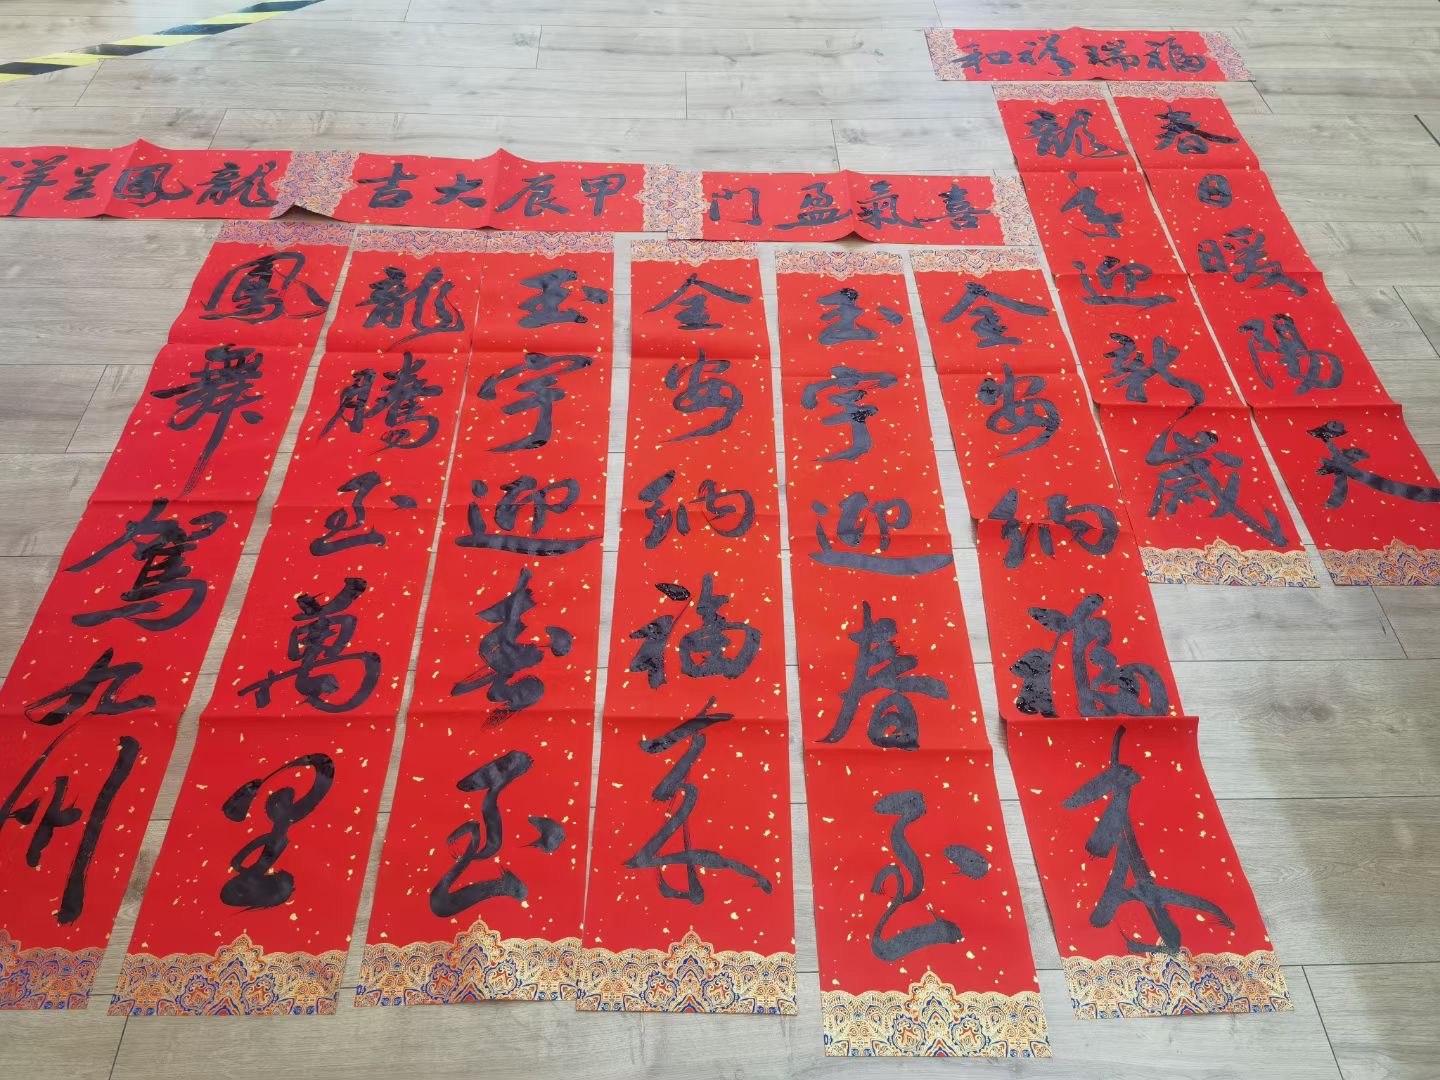 福瑞祥和
春日暖陽天
龍年迎新歲
喜氣盈門
金安納福來
玉宇迎春至
甲辰大吉
金安納福來
玉宇迎春至
龍鳳呈祥
龍騰至萬里
鳳舞駕九州